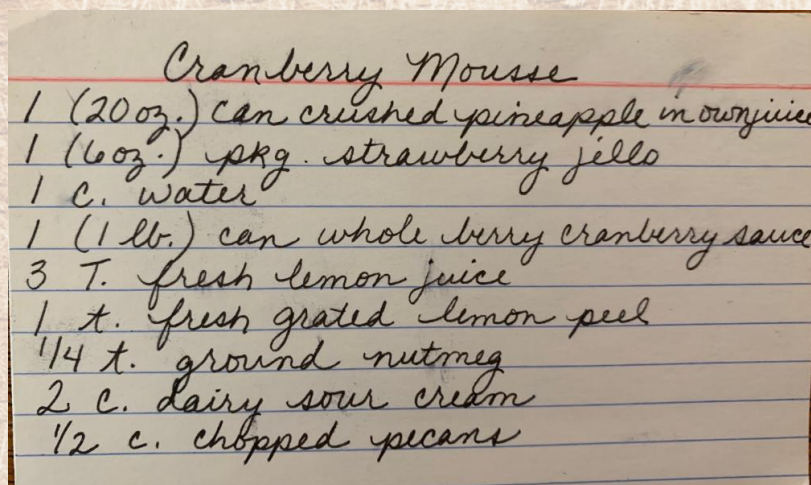 Cranberry Mousse
1 (20 oz.) can crushed pineapple in own juice
1 (6 oz.) pkg. strawberry jello
1 c. water
1 (1 lb.) can whole berry cranberry sauce
3 T. fresh lemon juice
1 t. fresh grated lemon peel
1/4 t. ground nutmeg
2 c. dairy sour cream
1/2 c. chopped pecans